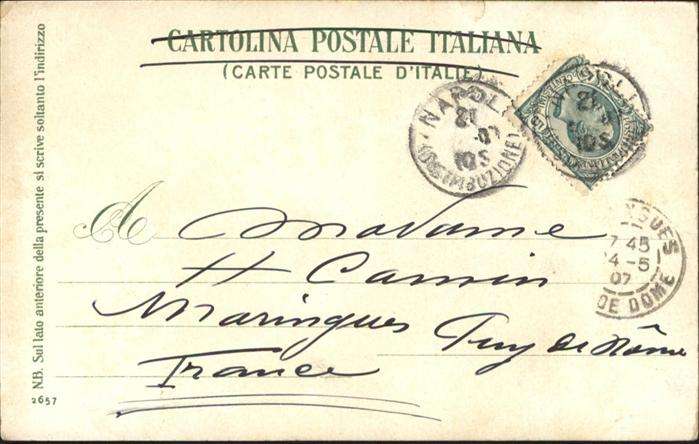 CARTOLINA POSTALE ITALIANA
(CARTE POSTALE D'ITALIE)
N.B. Sul lato anteriore della presente si scrive soltanto l'indirizzo
NAPOLI
(DISTRIBUZIONE)
GUES
7 45
4-5
07
DE DOME
A Madame
H
Maringues Puy de Dôme
France
2657